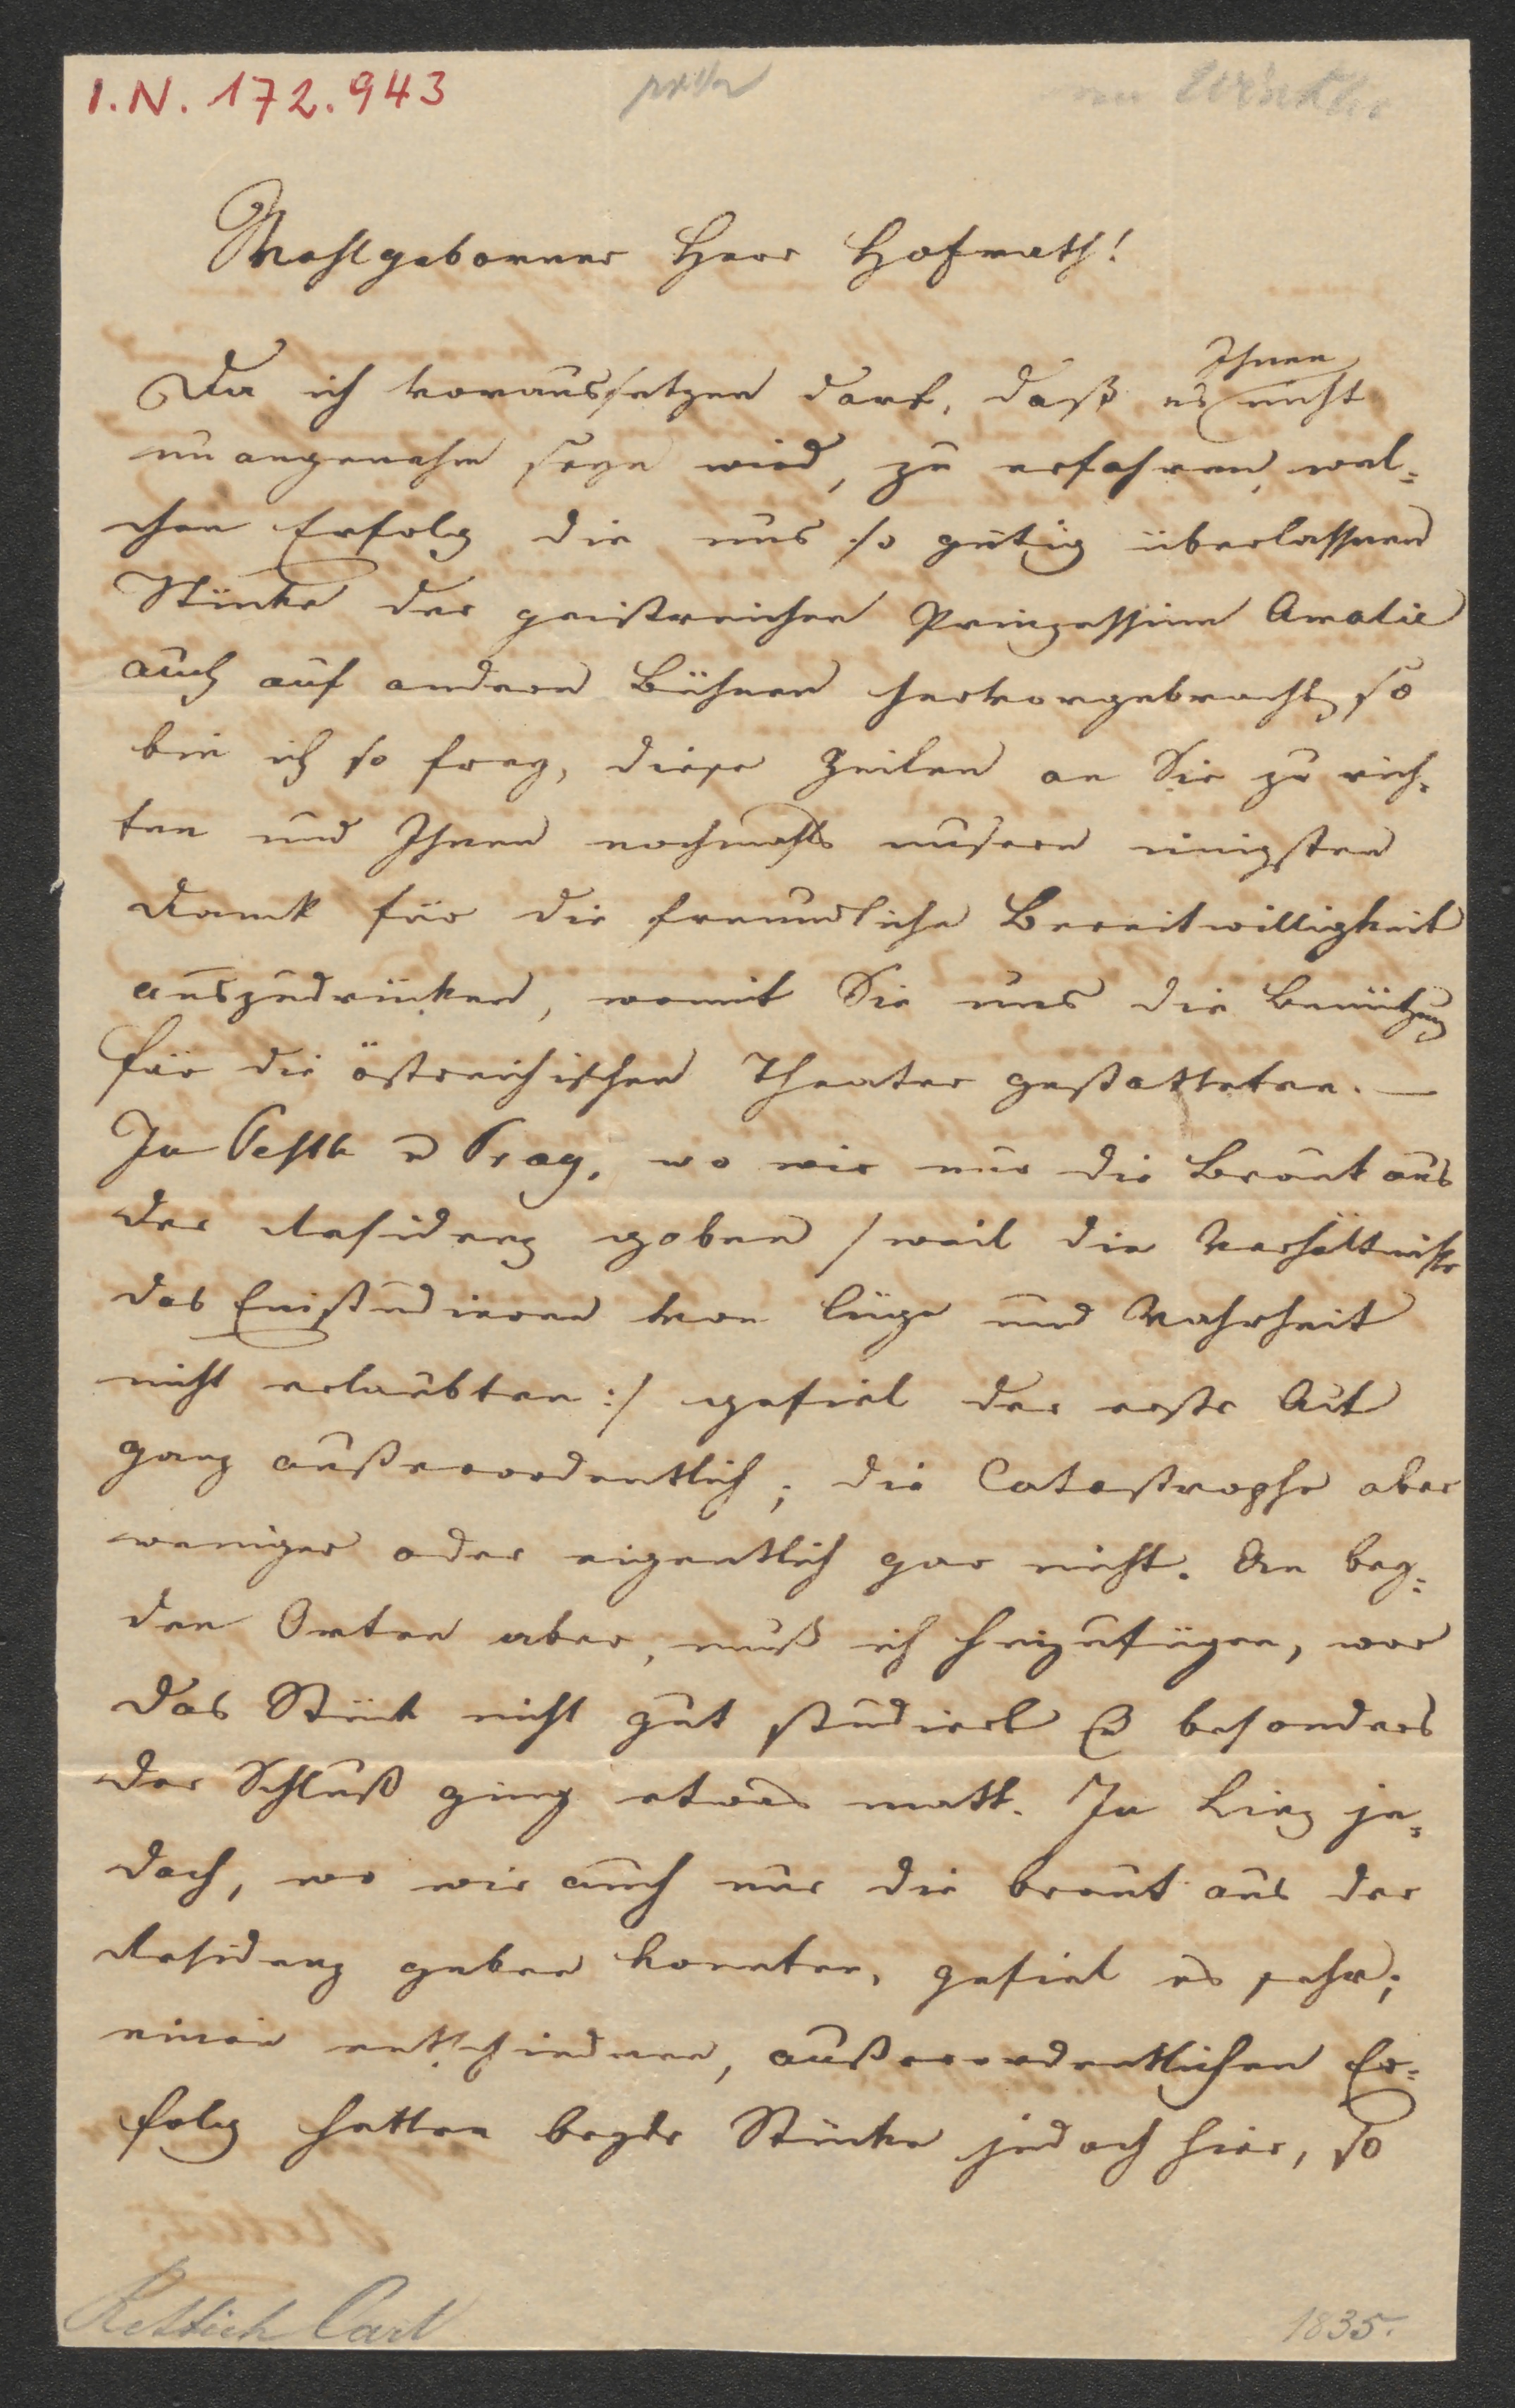 I.N. 172.943
an Winkler
Wohlgeborner Herr Hofrath!
Ihnen
Da ich voraussetzen darf, daß es nicht
unangenehm seyn wird, zu erfahren, wel=
chen Erfolg die uns so gütig überlassnen
Stücke der geistreichen Prinzessinn Amalie
auch auf andern Bühnen hervorgebracht, so
bin ich so frey, diese Zeilen an Sie zu rich=
ten und Ihnen nochmahls unsern innigsten
Dank für die freundliche Bereitwilligkeit
auszudrücken, womit Sie uns die Benützung
für die östreichischen Theater gestatteten. —
In Pesth u Prag, wo wir nur die Braut aus
der Residenz gaben /weil die Verhältniße
das Einstudieren von Lüge und Wahrheit
nicht erlaubten :/ gefiel der erste Act
ganz außerordentlich; die Catastrophe aber
weniger oder eigentlich gar nicht. An bey=
den Orten aber, muß ich hinzufügen, war
das Stück nicht gut studiert & besonders
der Schluß ging etwas matt. In Linz je=
doch, wo wir auch nur die Braut aus der
Residenz geben konnten, gefiel es sehr;
einen entschiednen, außerordentlichen Er=
folg hatten beyde Stücke jedoch hier, so
Rettich Carl
1835.